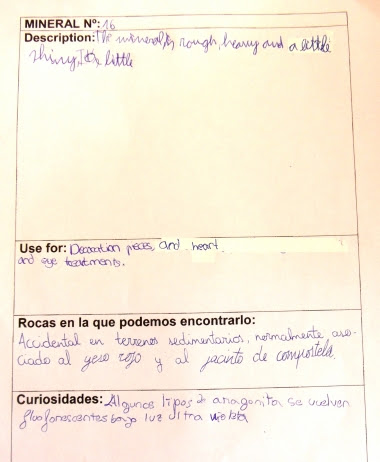 MINERAL Nº: 16
Description: The mineral is rough, heavy and a little
shiny, It's little
Use for: Decoration pieces, and heart.
and eye treatments.
Rocas en la que podemos encontrarlo:
Accidental en terrenos sedimentarios, normalmente aso-
ciado al yeso rojo y al jacinto de compostela
Curiosidades: Algunos tipos de aragonita se vuelven
fluoforescentes bajo luz ultra violeta